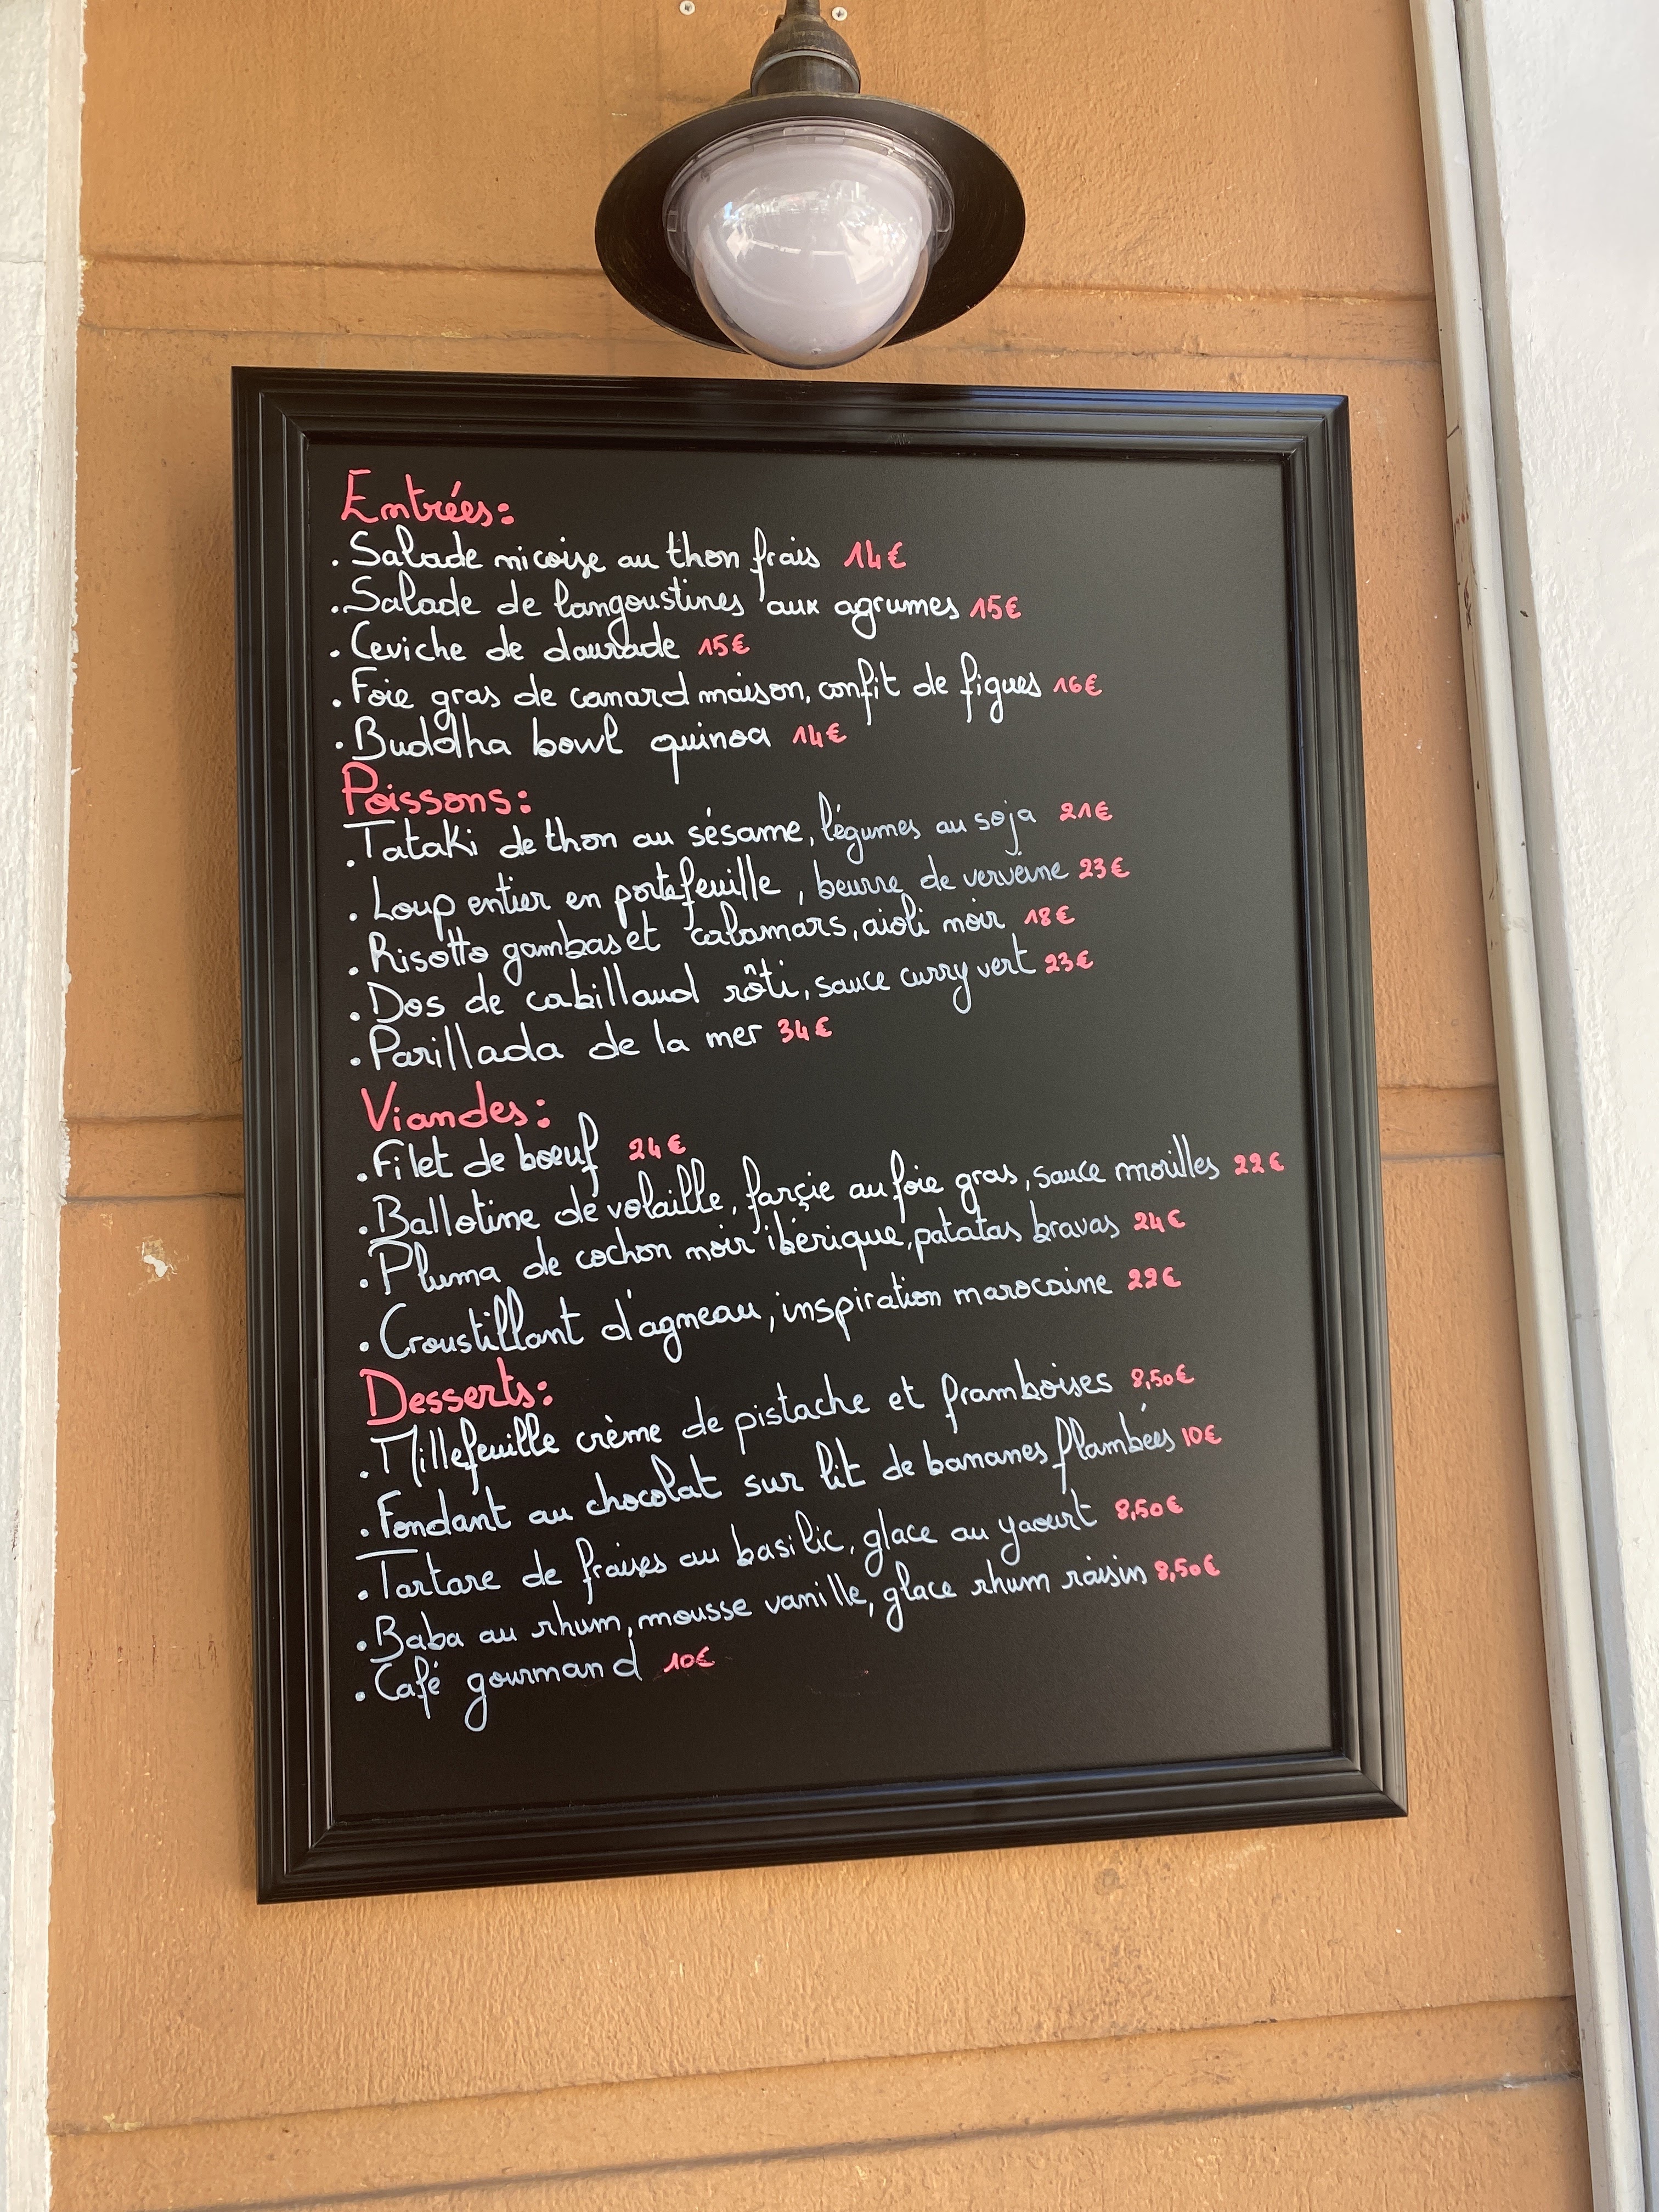 Entrées:
. Salade niçoise au thon frais 14€
. Salade de langoustines aux agrumes 15€
. Ceviche de daurade 15€
. Foie gras de canard maison, confit de figues 16€
. Buddha bowl quinoa 14€
Poissons:
. Tataki de thon au sésame, légumes au soja 21€
. Loup entier en portefeuille, beurre de verveine 23€
. Risotto gambas et calamars, aioli noir 18€
. Dos de cabillaud rôti, sauce curry vert 23€
. Parillada de la mer 34€
Viandes:
. Filet de boeuf 24€
. Ballotine de volaille, farçie au foie gras, sauce morilles 22€
. Pluma de cochon noir ibérique, patatas bravas 24€
. Croustillant d'agneau, inspiration marocaine 22€
Desserts:
. Millefeuille crème de pistache et framboises 8,50€
. Fondant au chocolat sur lit de bananes flambées 10€
. Tartare de fraises au basilic, glace au yaourt 8,50€
. Baba au rhum, mousse vanille, glace rhum raisin 8,50€
. Café gourmand 10€